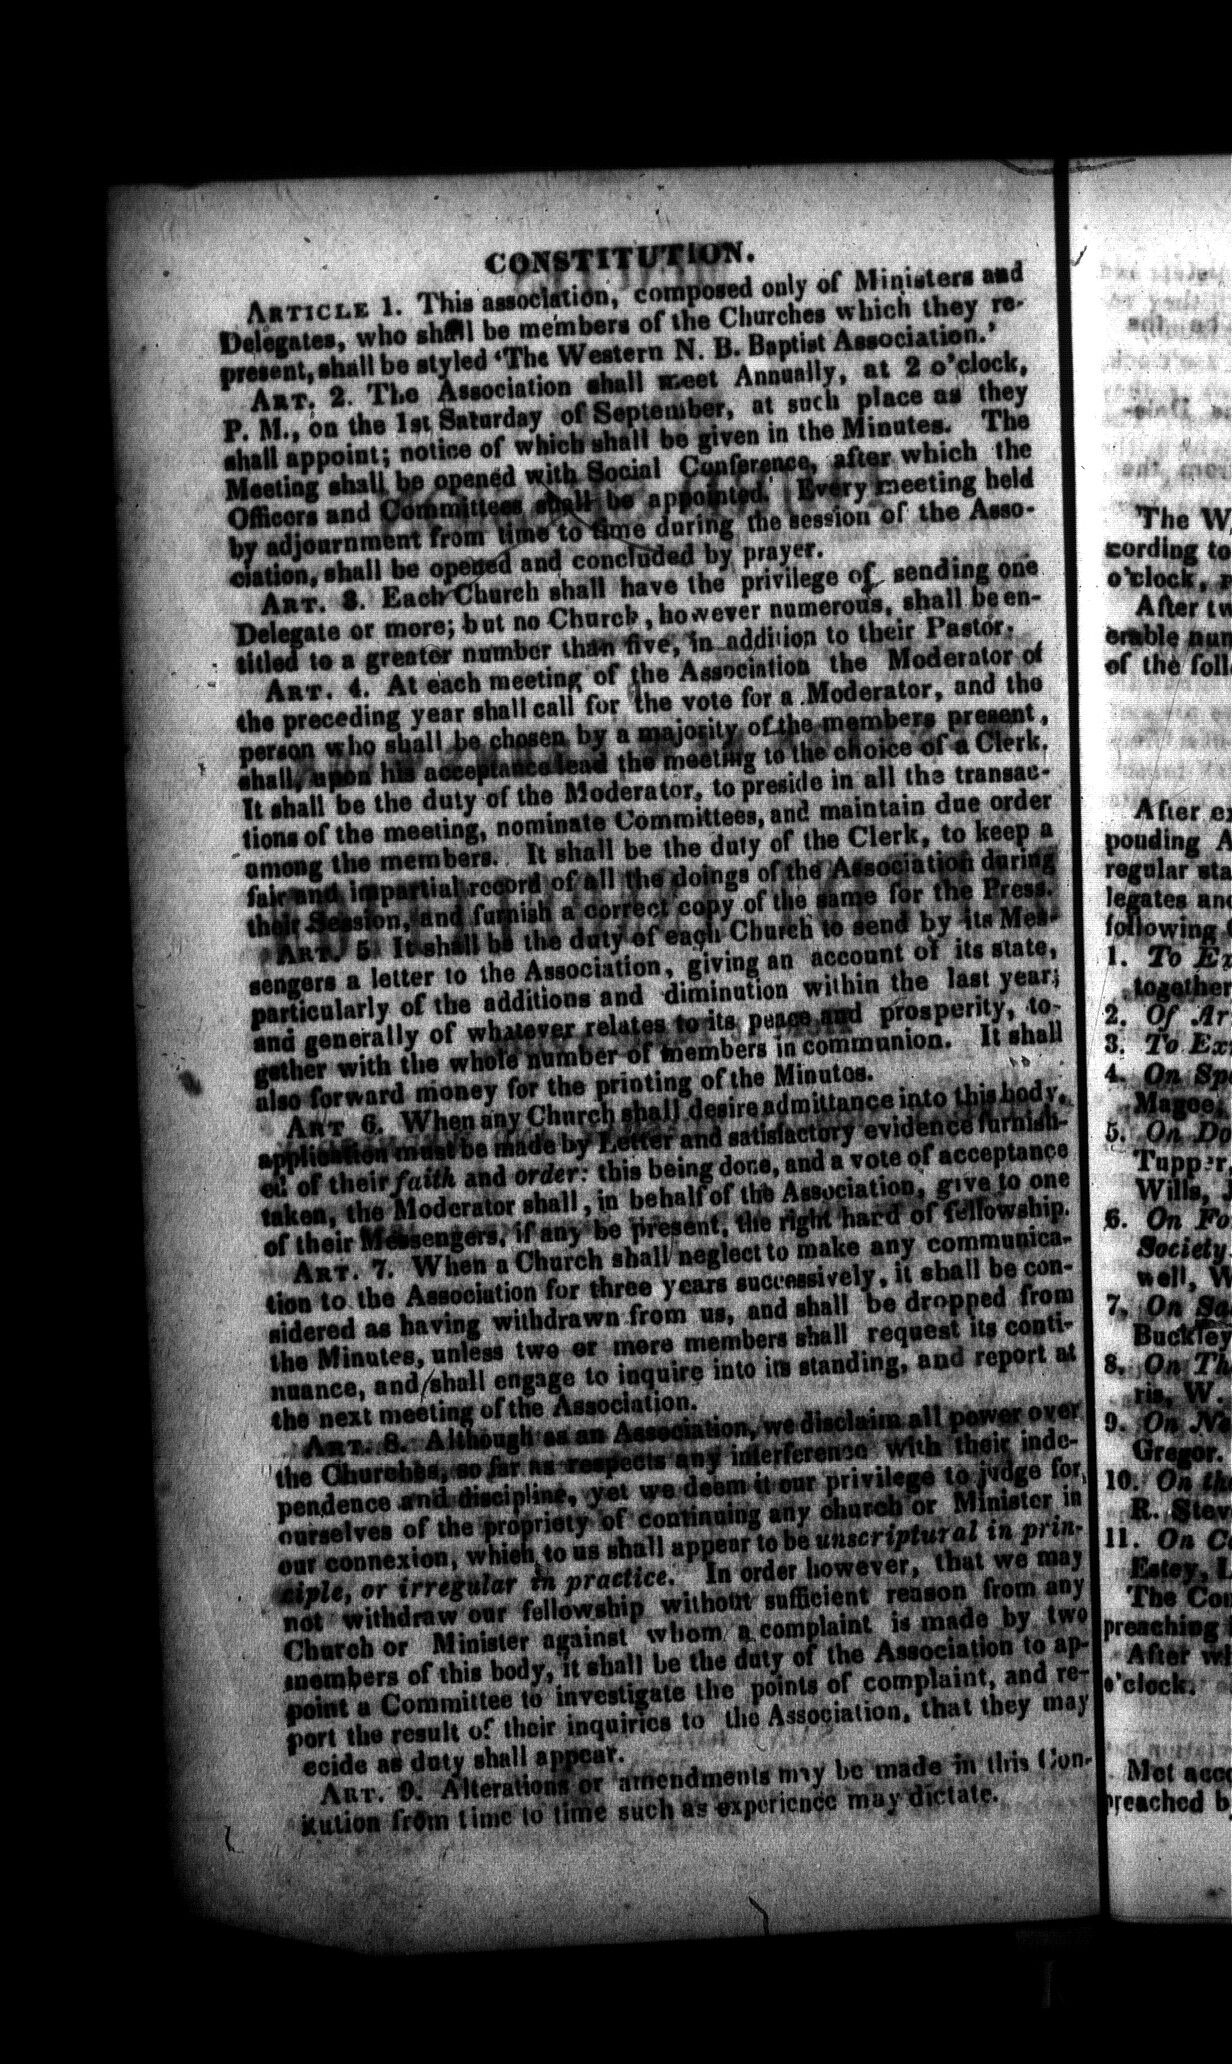 CONSTITUTION.
ARTICLE 1. This association, composed only of Ministers and
Delegates, who shall be members of the Churches which they re-
present, shall be styled 'The Western N. B. Baptist Association.'
ART. 2. The Association shall meet Annually, at 2 o'clock,
P. M., on the 1st Saturday of September, at such place as they
shall appoint; notice of which shall be given in the Minutes. The
Meeting shall be opened with Social Conference, after which the
Officers and Committees shall be appointed. Every meeting held
by adjournment from time to time during the session of the Asso-
ciation, shall be opened and concluded by prayer.
ART. 3. Each Church shall have the privilege of sending one
Delegate or more; but no Church, however numerous, shall be en-
titled to a greater number than five, in addition to their Pastor.
ART. 4. At each meeting of the Association the Moderator of
the preceding year shall call for the vote for a Moderator, and the
person who shall be chosen by a majority of the members present,
shall, upon his acceptance lead the meeting to the choice of a Clerk.
It shall be the duty of the Moderator, to preside in all the transac-
tions of the meeting, nominate Committees, and maintain due order
among the members. It shall be the duty of the Clerk, to keep a
fair and impartial record of all the doings of the Association during
their Session, and furnish a correct copy of the same for the Press.
ART. 5. It shall be the duty of each Church to send by its Mes-
sengers a letter to the Association, giving an account of its state,
particularly of the additions and diminution within the last year;
and generally of whatever relates to its peace and prosperity, to-
gether with the whole number of members in communion. It shall
also forward money for the printing of the Minutes.
ART 6. When any Church shall desire admittance into this body,
application must be made by Letter and satisfactory evidence furnish-
ed of their faith and order: this being done, and a vote of acceptance
taken, the Moderator shall, in behalf of the Association, give to one
of their Messengers, if any be present, the right hard of fellowship.
ART. 7. When a Church shall neglect to make any communica-
tion to the Association for three years successively, it shall be con-
sidered as having withdrawn from us, and shall be dropped from
the Minutes, unless two or more members shall request its conti-
nuance, and shall engage to inquire into its standing, and report at
the next meeting of the Association.
ART. 8. Although as an Association, we disclaim all power over
the Churches, so far as respects any interference with their inde-
pendence and discipline, yet we deem it our privilege to judge for
ourselves of the propriety of continuing any church or Minister in
our connexion, which to us shall appear to be unscriptural in prin-
ciple, or irregular in practice. In order however, that we may
not withdraw our fellowship without sufficient reason from any
Church or Minister against whom a complaint is made by two
members of this body, it shall be the duty of the Association to ap-
point a Committee to investigate the points of complaint, and re-
port the result of their inquiries to the Association, that they may
ecide as duty shall appear.
ART. 9. Alterations or amendments may be made in this Con-
itution from time to time such as experience may dictate.
The W
cording to
o'clock,
After
erable num
of the foll
After ex
ponding A
regular sta
legates and
following
1. To Ex
together
2. Of Ar
3. To Ex
4. On Sp
Magee,
5. On Do
Tupper,
Wills,
6. On Fo
Society
well, W
7. On Sa
Buckley
8. On Th
ris, W.
9. On N
Gregor.
10. On th
R. Stev
11. On Co
Estey, L
The Com
preaching
After wh
o'clock.
Met acco
preached b